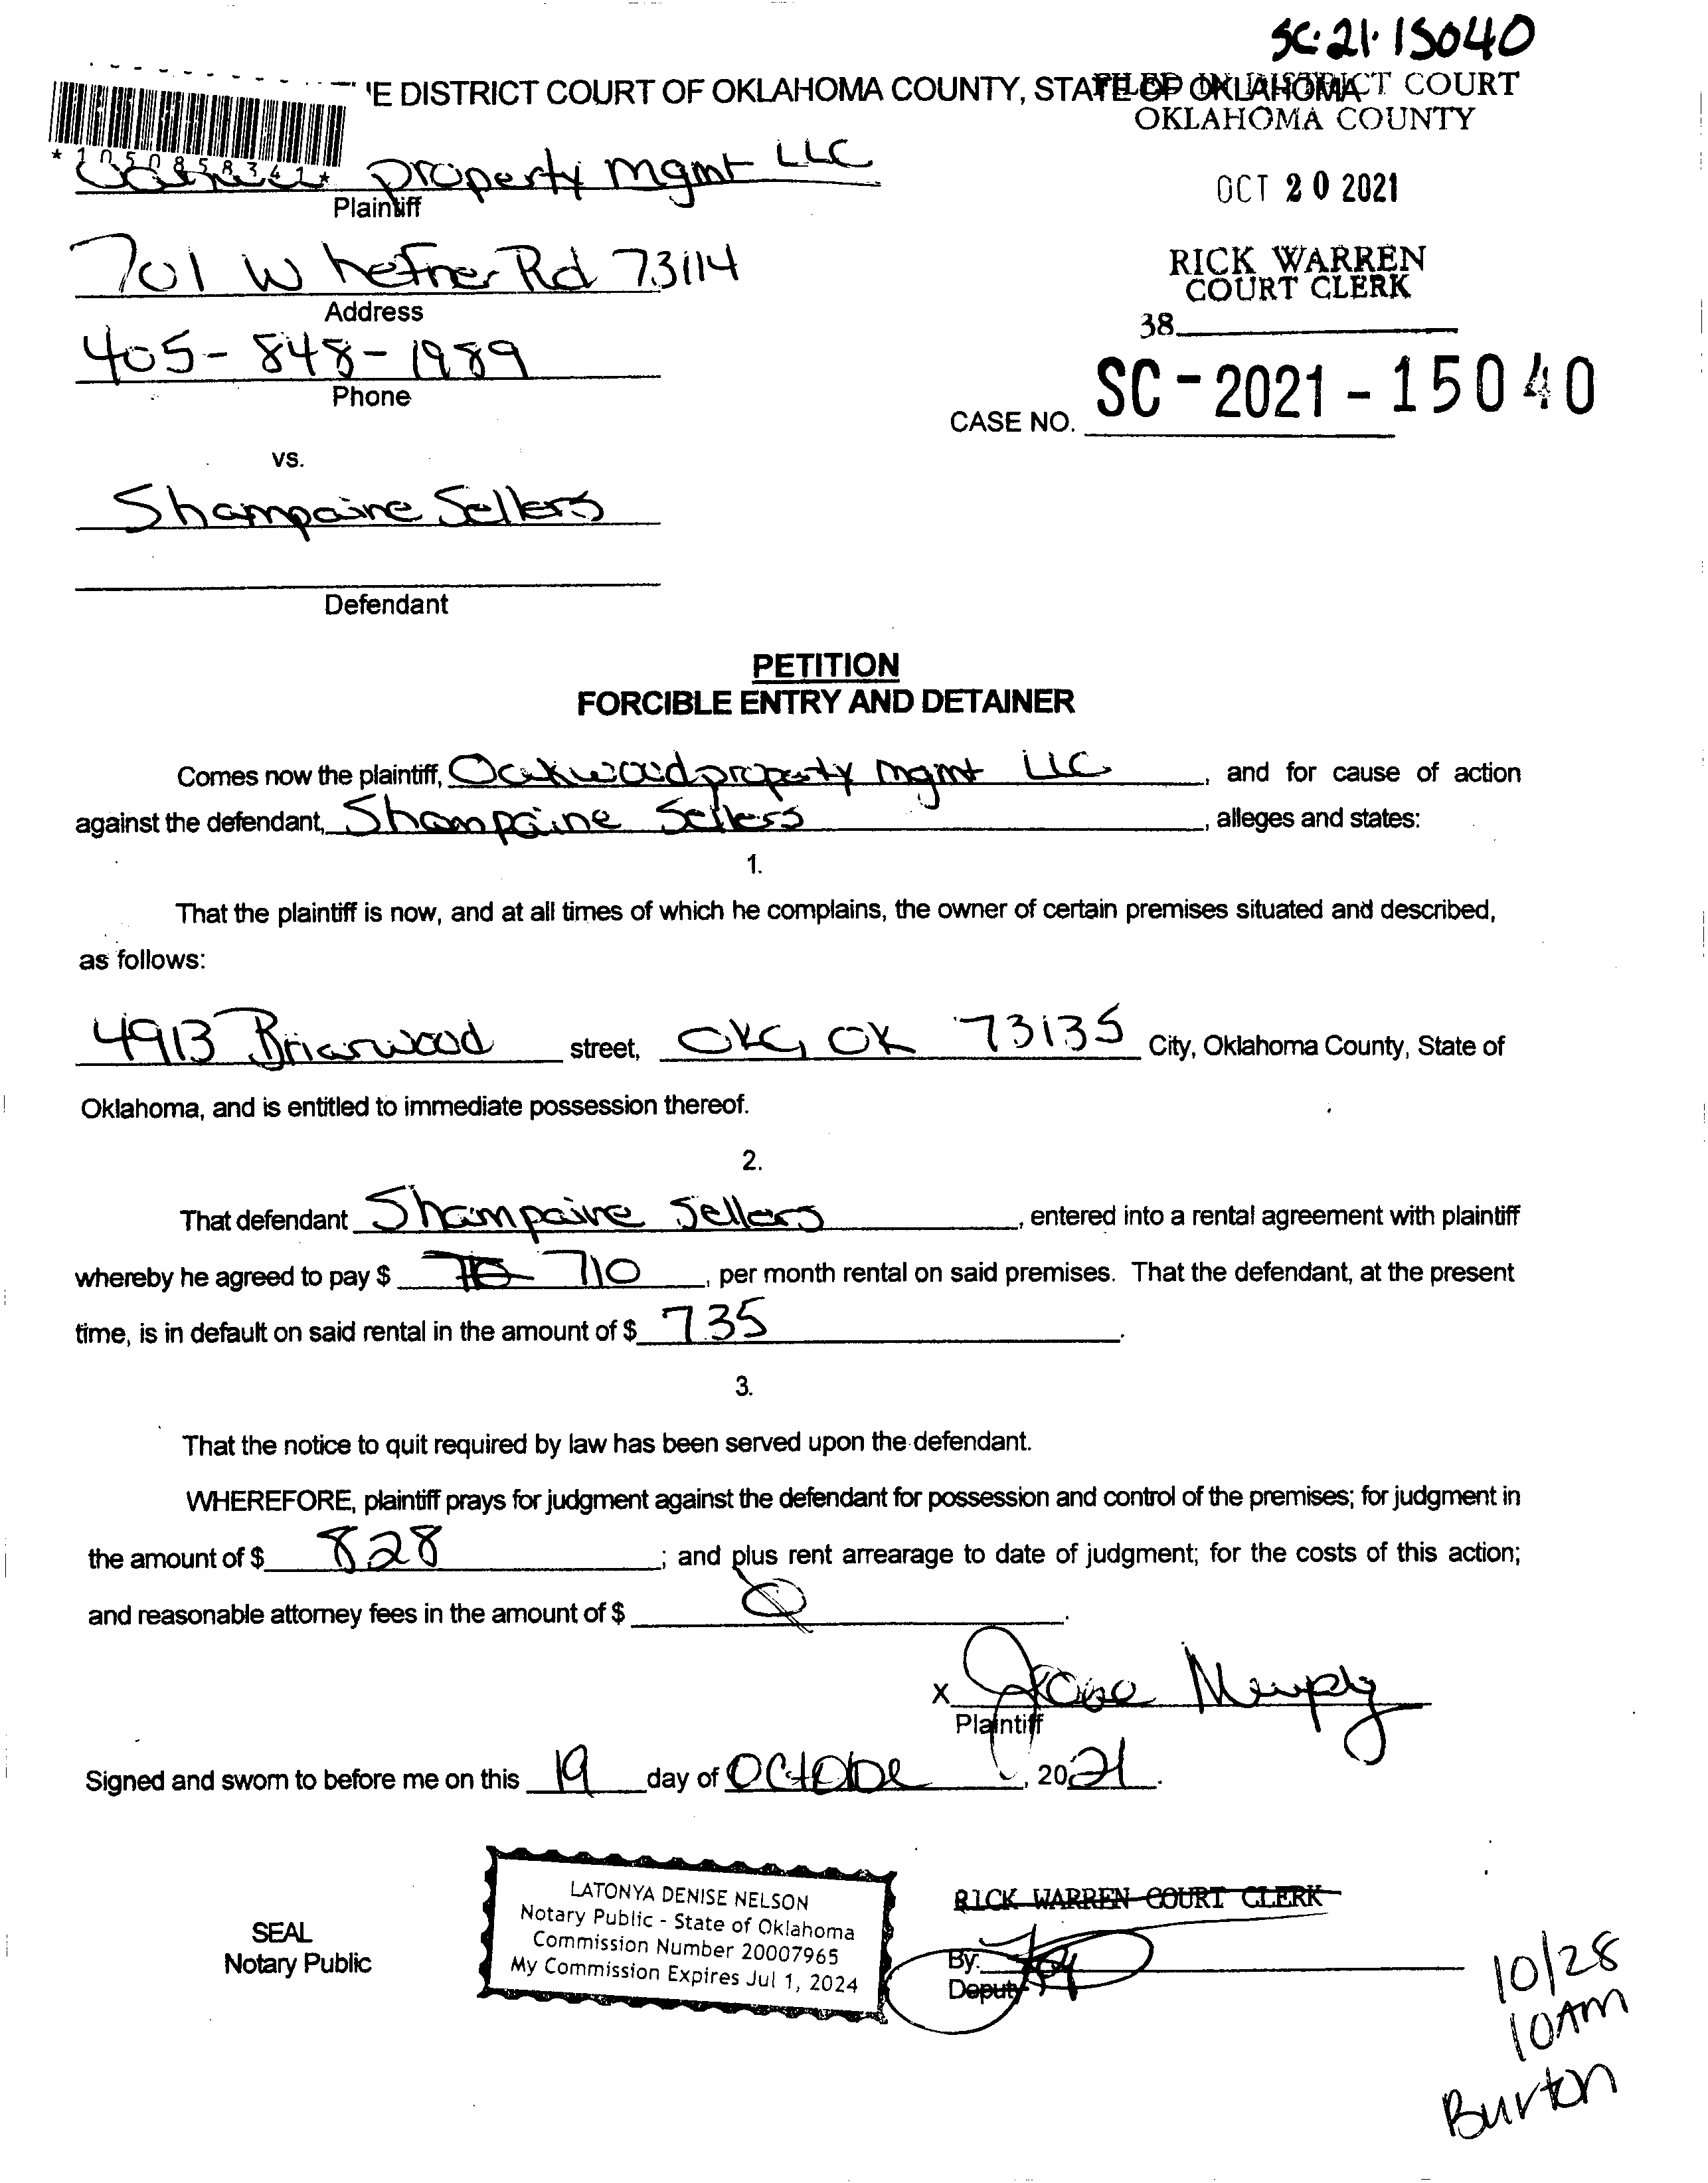 SC-21-15040
'E DISTRICT COURT OF OKLAHOMA COUNTY, STATE OF OKLAHOMA
FILED IN DISTRICT COURT
OKLAHOMA COUNTY
*1050858341*
property mgmt LLC
Plaintiff
OCT 20 2021
701 W hefner Rd 73114
Address
RICK WARREN
COURT CLERK
38
405-848-1989
Phone
CASE NO. SC-2021-15040
vs.
Shampaine Sellers
Defendant
PETITION
FORCIBLE ENTRY AND DETAINER
Comes now the plaintiff, Oakwood property mgmt LLC, and for cause of action
against the defendant, Shampaine Sellers, alleges and states:
1.
That the plaintiff is now, and at all times of which he complains, the owner of certain premises situated and described,
as follows:
4913 Briarwood street, OKC, OK 73135 City, Oklahoma County, State of
Oklahoma, and is entitled to immediate possession thereof.
2.
That defendant Shampaine Sellers, entered into a rental agreement with plaintiff
whereby he agreed to pay $ 710, per month rental on said premises. That the defendant, at the present
time, is in default on said rental in the amount of $ 735.
3.
That the notice to quit required by law has been served upon the defendant.
WHEREFORE, plaintiff prays for judgment against the defendant for possession and control of the premises; for judgment in
the amount of $ 828; and plus rent arrearage to date of judgment; for the costs of this action;
and reasonable attorney fees in the amount of $ 0.
X
Plaintiff
Signed and sworn to before me on this 19 day of October, 2021.
LATONYA DENISE NELSON
Notary Public - State of Oklahoma
Commission Number 20007965
My Commission Expires Jul 1, 2024
SEAL
Notary Public
RICK WARREN COURT CLERK
By:
Deputy
10/28
10AM
Burton